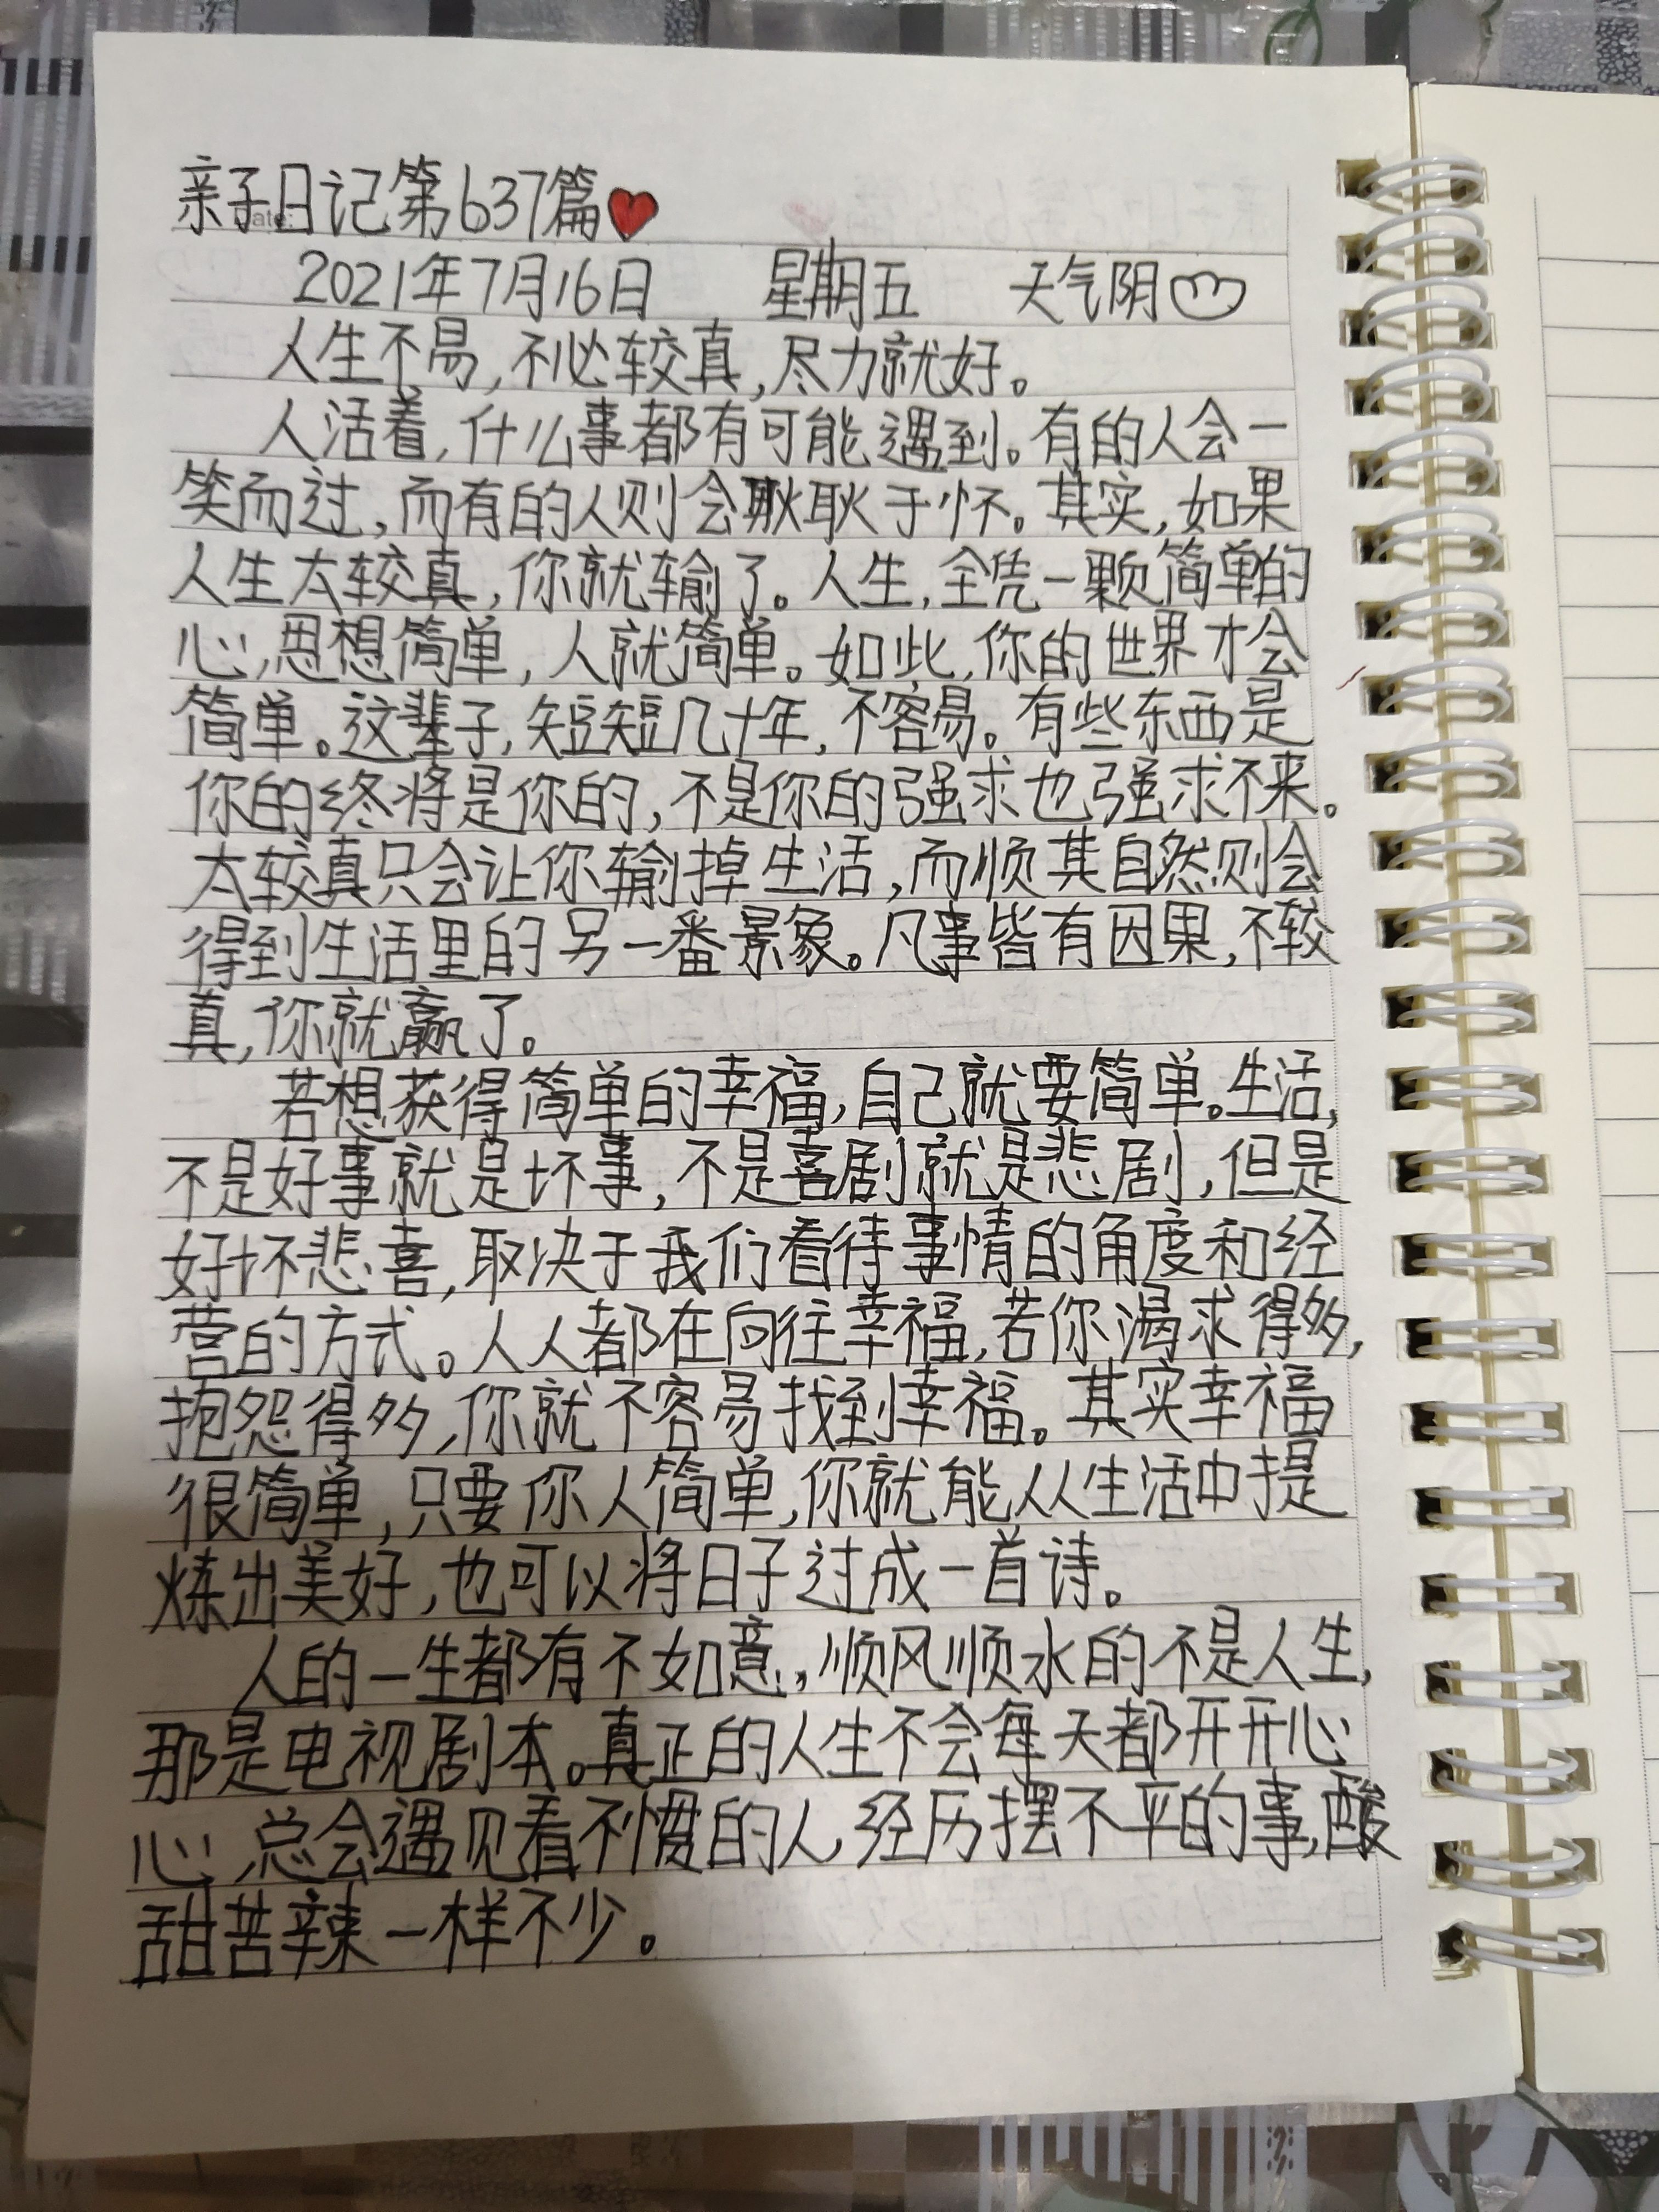 亲子日记第637篇
2021年7月16日 星期五 天气阴
人生不易,不必较真,尽力就好。
人活着,什么事都有可能遇到。有的人会一
笑而过,而有的人则会耿耿于怀。其实,如果
人生太较真,你就输了。人生,全凭一颗简单的
心,思想简单,人就简单。如此,你的世界才会
简单。这辈子,短短几十年,不容易。有些东西是
你的终将是你的,不是你的强求也强求不来。
太较真只会让你输掉生活,而顺其自然则会
得到生活里的另一番景象。凡事皆有因果,不较
真,你就赢了。
若想获得简单的幸福,自己就要简单。生活,
不是好事就是坏事,不是喜剧就是悲剧,但是
好坏悲喜,取决于我们看待事情的角度和经
营的方式。人人都在向往幸福,若你渴求得多,
抱怨得多,你就不容易找到幸福。其实幸福
很简单,只要你人简单,你就能从生活中提
炼出美好,也可以将日子过成一首诗。
人的一生都有不如意,顺风顺水的不是人生,
那是电视剧本。真正的人生不会每天都开开心
心,总会遇见看不惯的人,经历摆不平的事,酸
甜苦辣一样不少。